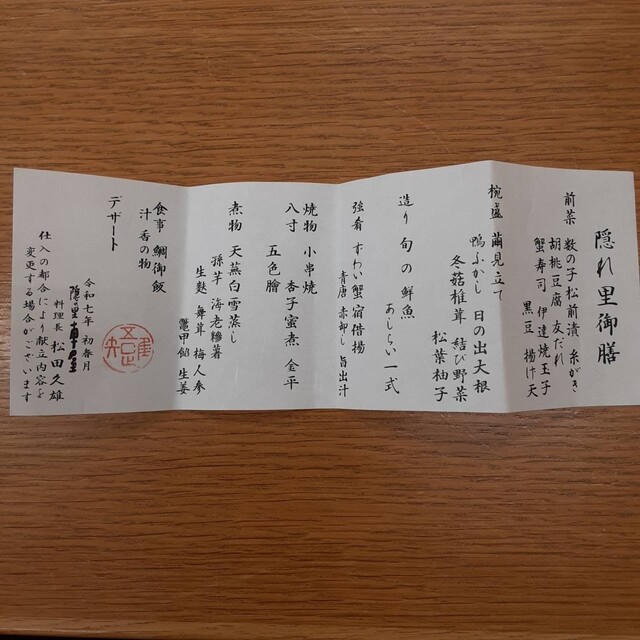 隠れ里御膳
前菜 数の子松前漬 糸がき
胡桃豆腐 友だれ
蟹寿司 伊達焼玉子
黒豆 揚げ天
椀盛 繭見立て
鴨ふかし 日の出大根
冬菇椎茸 結び野菜
松葉柚子
造り 旬の鮮魚
あしらい一式
強肴 ずわい蟹宿借揚
青唐 赤卸し 旨出汁
焼物 小串焼
八寸 杏子蜜煮 金平
五色膾
煮物 天蕪白雪蒸し
孫芋 海老糝薯
生麩 舞茸 梅人参
鼈甲餡 生姜
食事 鯛御飯
汁 香の物
デザート
令和七年 初春月
隠れ里 車屋
料理長 松田久雄
仕入の都合により献立内容を
変更する場合がございます